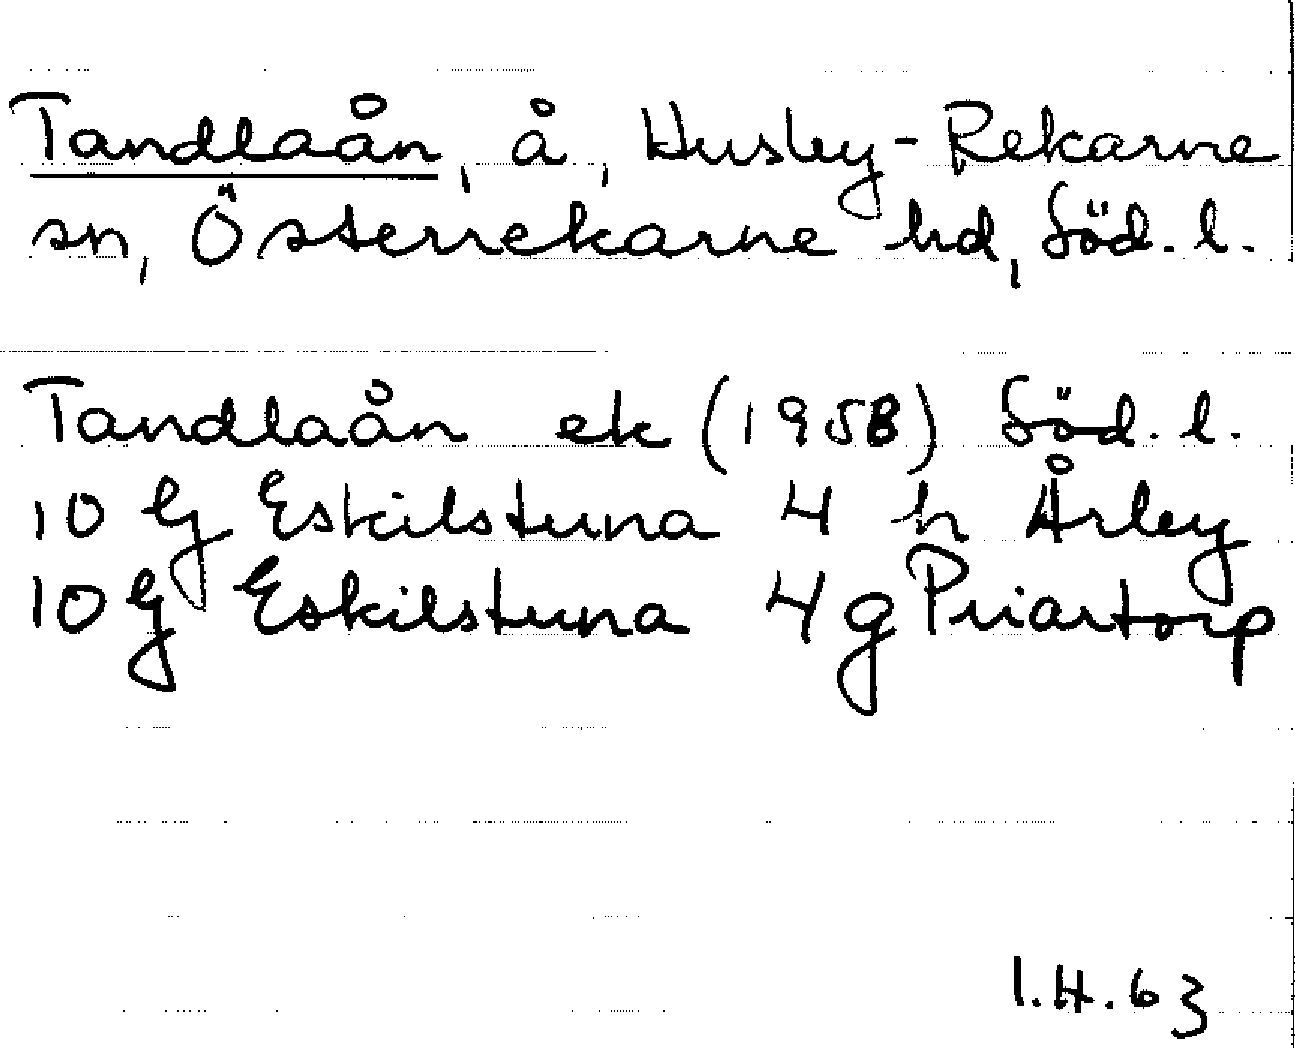 Tandlaån, å, Husby-Rekarne
sn, Österrekarne hd, Söd. l.
Tandlaån ek (1958) Söd. l.
10 G Eskilstuna 4 h Årby
10 G Eskilstuna 4 g Priartorp
I.H. 63